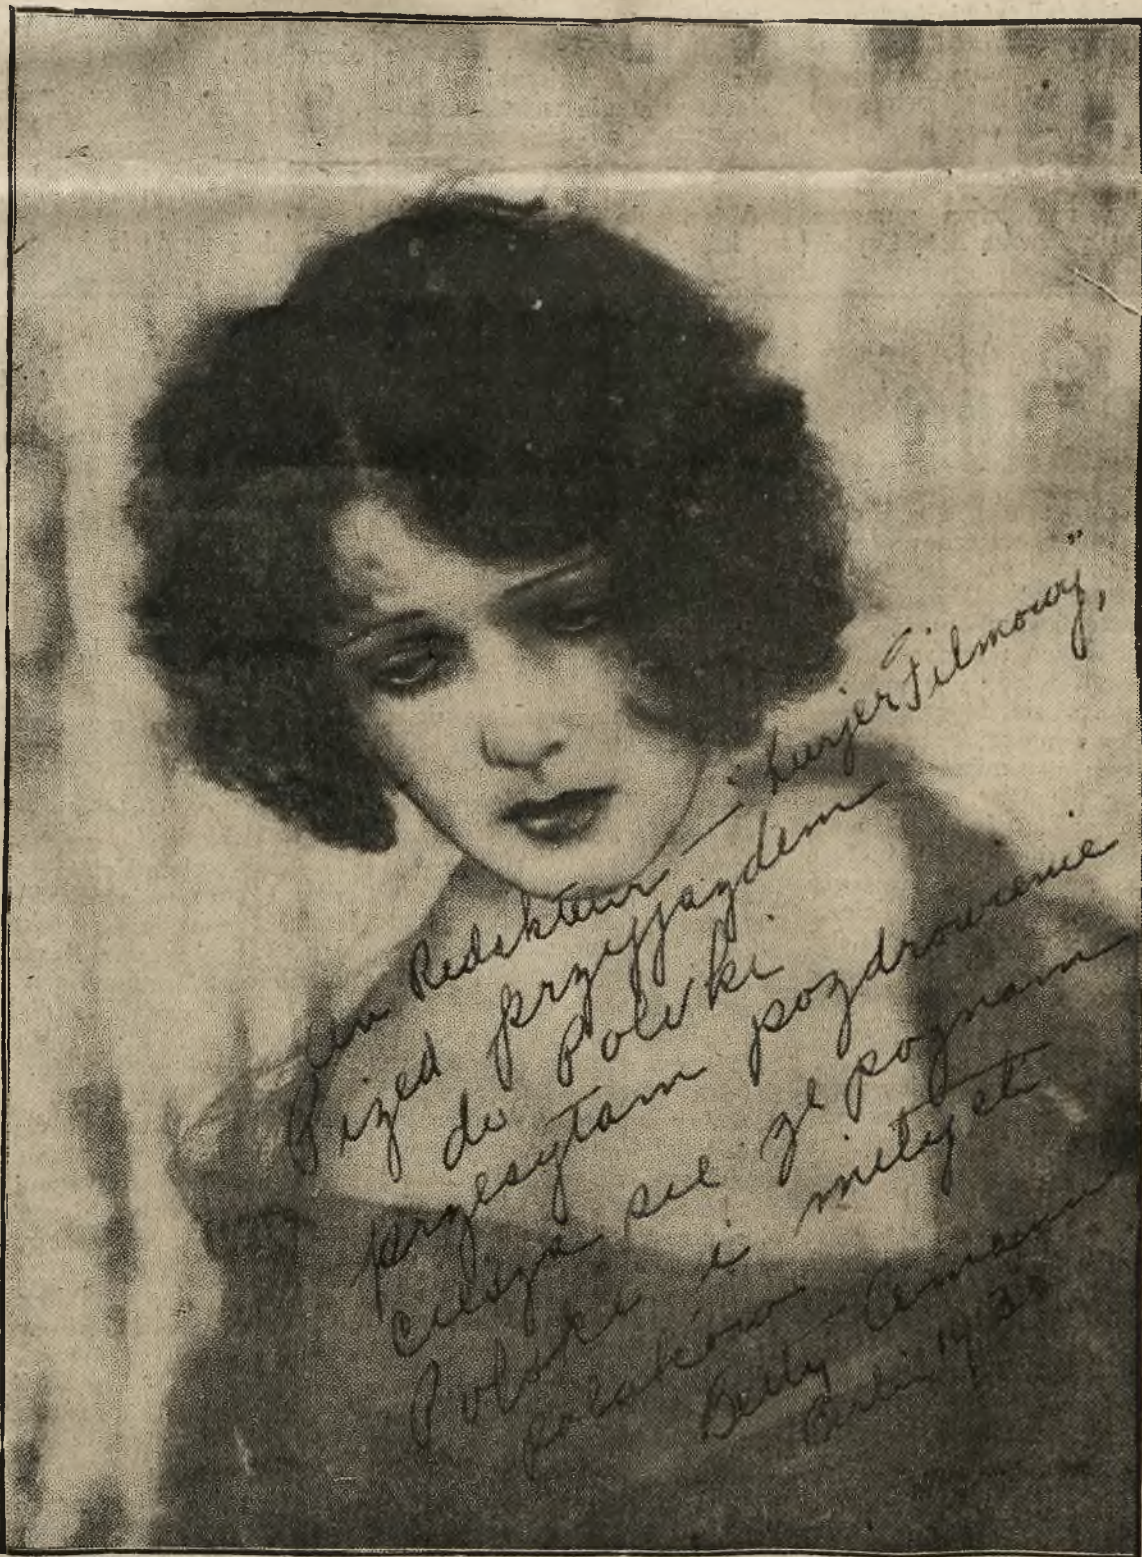 Pan Redaktor — "Kurjer Filmowy"
Przed przyjazdem
do Polski
przesyłam pozdrowienie
Ciesze sie ze poznam
Polske i miłych
polakow
Betty Amann
Berlin 1930